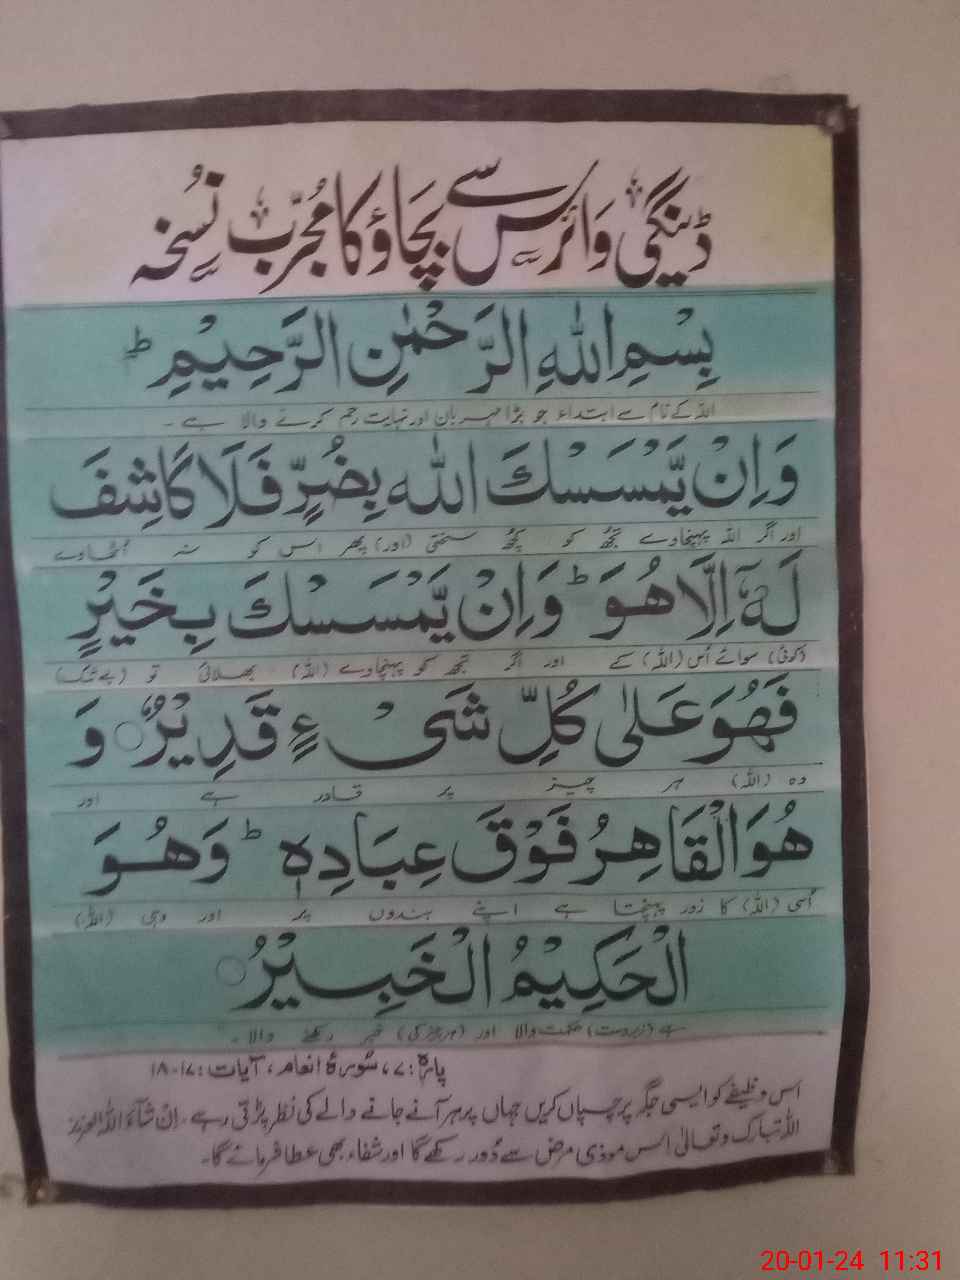 ڈینگی وائرس سے بچاؤ کا مجرّب نسخہ
بِسْمِ اللهِ الرَّحْمٰنِ الرَّحِيْمِ ط
اللہ کے نام سے ابتداء جو بڑا مہربان اور نہایت رحم کرنے والا ہے ۔
وَ اِنْ يَّمْسَسْكَ اللهُ بِضُرٍّ فَلَا كَاشِفَ
اور اگر اللہ پہنچاوے تجھ کو کچھ سختی (اور) پھر اس کو نہ اٹھاوے
لَهٗۤ اِلَّا هُوَ ط وَ اِنْ يَّمْسَسْكَ بِخَيْرٍ
(کوئی) سوائے اُس (اللہ) کے اور اگر تجھ کو پہنچاوے (اللہ) بھلائی تو (بے شک)
فَهُوَ عَلٰى كُلِّ شَىْءٍ قَدِيْرٌ ○ وَ
وہ (اللہ) ہر چیز پر قادر ہے اور
هُوَ الْقَاهِرُ فَوْقَ عِبَادِهٖ ط وَ هُوَ
اُسی (اللہ) کا زور پہنچتا ہے اپنے بندوں پر اور وہی (اللہ)
الْحَكِيْمُ الْخَبِيْرُ ○
ہے (زبردست) حکمت والا اور (ہر چیز کی) خبر رکھنے والا ۔
پارہ: ۷، سُورۂ انعام، آیات: ۱۷-۱۸
اس وظیفے کو ایسی جگہ پر چسپاں کریں جہاں پر ہر آنے جانے والے کی نظر پڑتی رہے ۔ اِنْ شَآءَ اللہ العزیز
اللہ تبارک و تعالیٰ اس موذی مرض سے دُور رکھے گا اور شفاء بھی عطا فرمائے گا۔
20-01-24 11:31